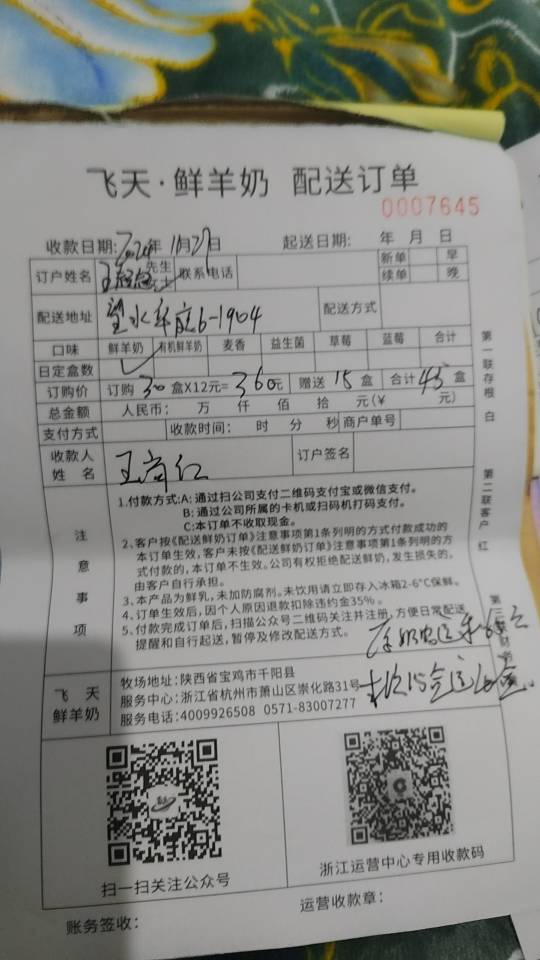 飞天·鲜羊奶 配送订单
0007645
收款日期: 2024年 11月27日 起送日期: 年 月 日
订户姓名 王 先生 女士 联系电话 新单 早
续单 晚
配送地址 望水华庭6-1904 配送方式
口味 鲜羊奶 有机鲜羊奶 麦香 益生菌 草莓 蓝莓 合计
日定盒数 ✓
订购价 订购 30 盒X12元= 360元 赠送 15 盒 合计 45 盒
总金额 人民币: 万 仟 佰 拾 元(¥ 元)
支付方式 收款时间: 时 分 秒 商户单号
收款人姓名 王 仁 订户签名
注意事项
1.付款方式:A: 通过扫公司支付二维码支付宝或微信支付。
B: 通过公司所属的卡机或扫码机打码支付。
C:本订单不收取现金。
2、客户按《配送鲜奶订单》注意事项第1条列明的方式付款成功的
本订单生效,客户未按《配送鲜奶订单》注意事项第1条列明的方
式付款的,本订单不生效。公司有权拒绝配送鲜奶,发生损失的,
由客户自行承担。
3、本产品为鲜乳,未加防腐剂。未饮用请立即存入冰箱2-6°C保鲜。
4、订单生效后,因个人原因退款扣除违约金35%。
5、付款完成订单后,扫描公众号二维码关注并注册,方便日常配送
提醒和自行起送,暂停及修改配送方式。
飞天鲜羊奶
牧场地址:陕西省宝鸡市千阳县
服务中心:浙江省杭州市萧山区崇化路31号
服务电话:4009926508 0571-83007277
第一联存根 白
第二联客户 红
第三联财务
扫一扫关注公众号
浙江运营中心专用收款码
账务签收:
运营收款章: